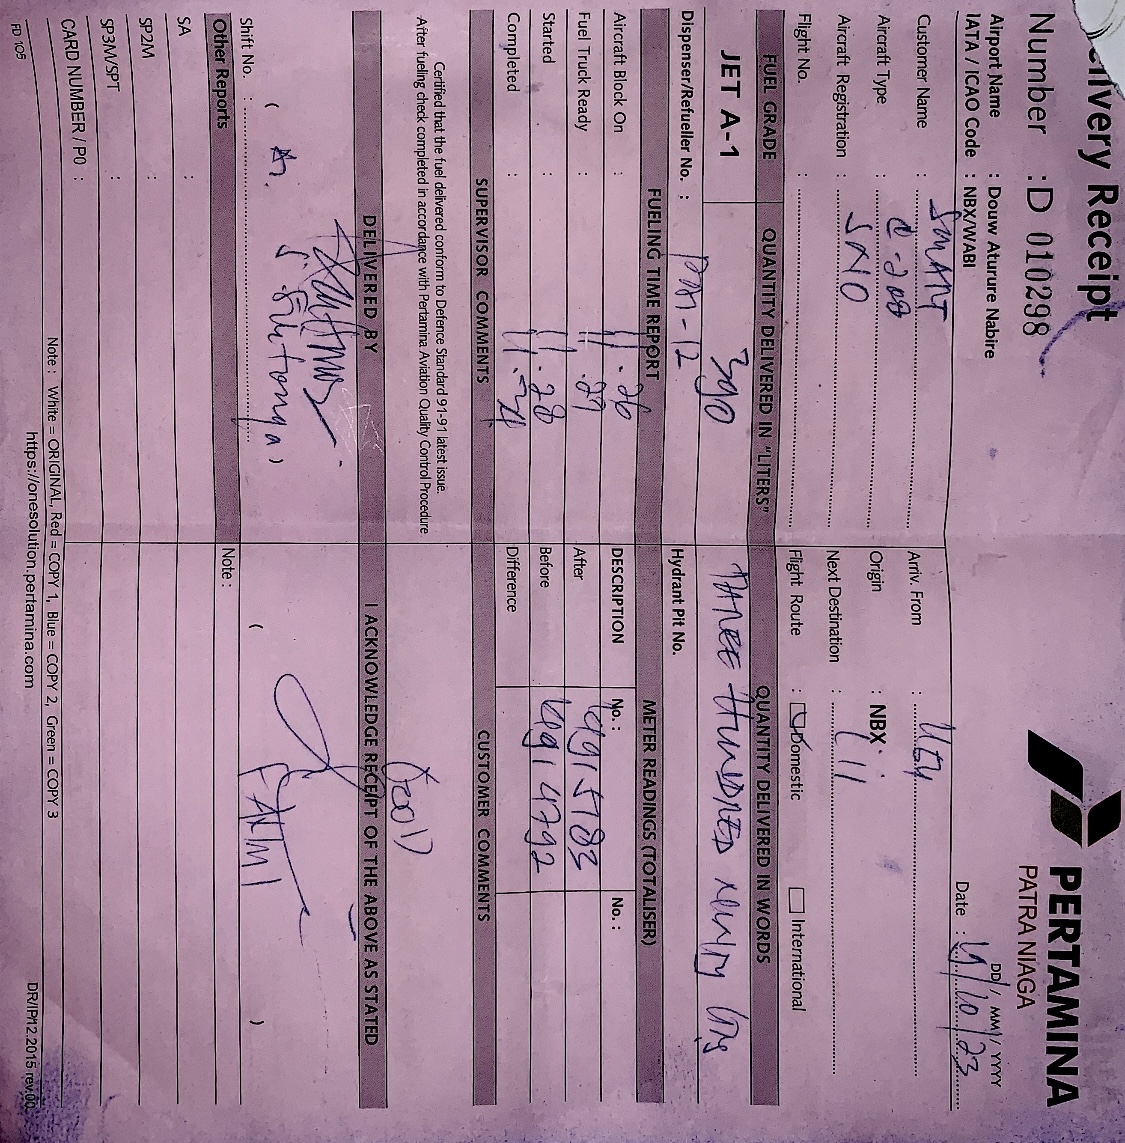 elivery Receipt
PERTAMINA
PATRA NIAGA
Number : D 010298
DD / MM / YYYY
Airport Name : Douw Aturure Nabire
IATA / ICAO Code : NBX/WABI
Date : 4/10/23
Customer Name : SMART
Arriv. From :
Aircraft Type : C-208
Origin : NBX
Aircraft Registration : SNO
Next Destination :
Flight No. :
Flight Route : Domestic International
FUEL GRADE
QUANTITY DELIVERED IN "LITERS"
QUANTITY DELIVERED IN WORDS
JET A-1
390
THREE HUNDRED NINTY
Dispenser/Refueller No. :
Hydrant Pit No.
FUELING TIME REPORT
METER READINGS (TOTALISER)
Aircraft Block On : 11.26
DESCRIPTION No. : No. :
Fuel Truck Ready : 11.27
After
Started : 11.28
Before
Completed :
Difference
SUPERVISOR COMMENTS
CUSTOMER COMMENTS
Certified that the fuel delivered conform to Defence Standard 91-91 latest issue.
After fueling check completed in accordance with Pertamina Aviation Quality Control Procedure
DELIVERED BY
I ACKNOWLEDGE RECEIPT OF THE ABOVE AS STATED
Shift No. :
Other Reports
Note :
SA :
SP2M :
SP3M/SPT :
CARD NUMBER / PO :
Note : White = ORIGINAL, Red = COPY 1, Blue = COPY 2, Green = COPY 3
https://onesolution.pertamina.com
FD 105
DR/IP/12.2015 rev.00